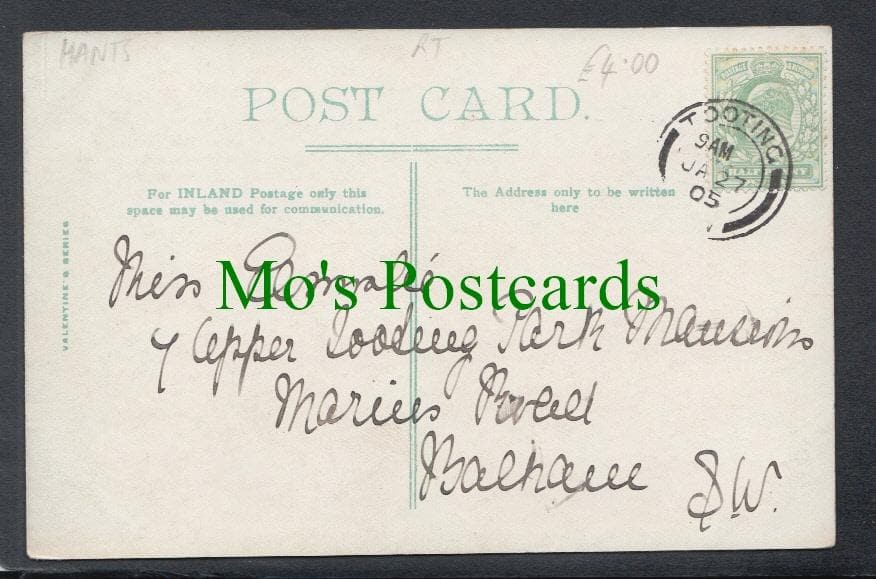 HANTS
RT
£4.00
POST CARD.
TOOTING
9AM
JA 27
05
For INLAND Postage only this
space may be used for communication.
The Address only to be written
here
VALENTINE'S SERIES
Miss
Mo's Postcards
7 Upper Tooting Park Mansions
Marius Road
Balham
S.W.